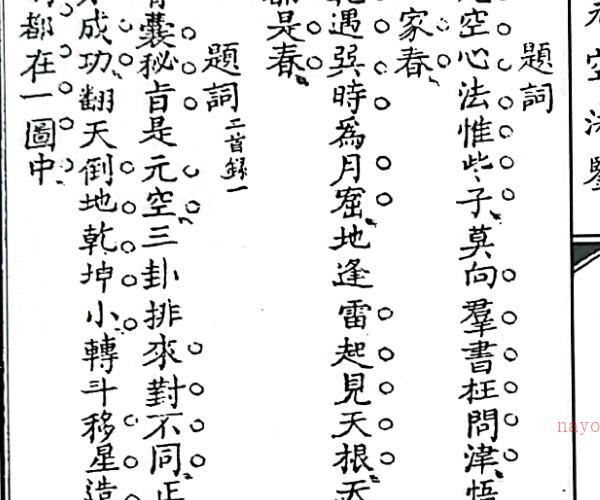 元空法鑒
題詞
空心法惟些子莫向羣書枉問津悟
家春
乾遇巽時爲月窟地逢雷起見天根天
都是春
題詞 二首錄一
囊秘旨是元空三卦排來對不同正
成功翻天倒地乾坤小轉斗移星造
都在一圖中
nayo